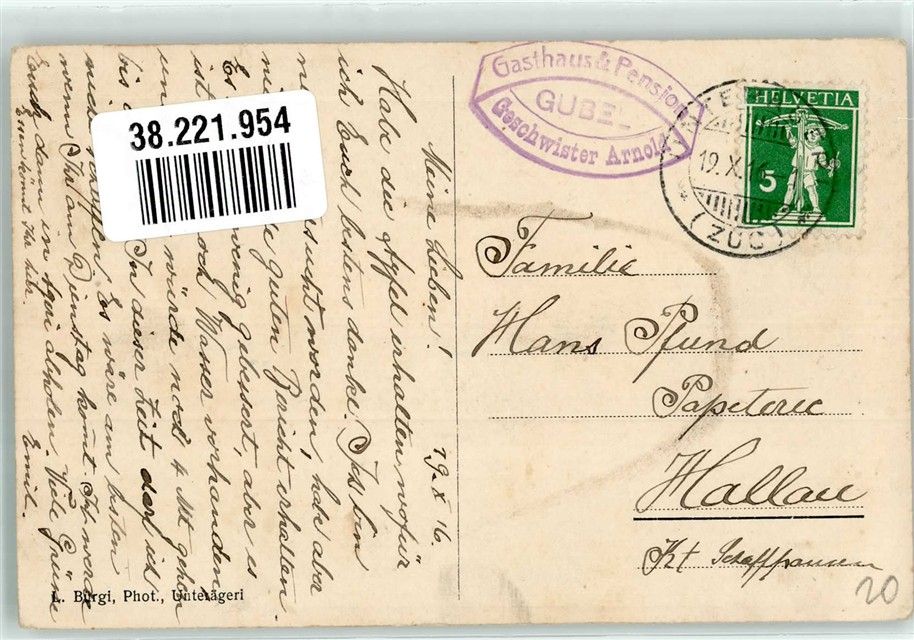 38.221.954
Gasthaus & Pension
GUBEL
Geschwister Arnold
HELVETIA
5
19.X.16
(ZUG)
19. X 16.
Meine Lieben!
Habe die Äpfel erhalten, wofür
ich Euch bestens danke. Ich bin
sucht worden, habe aber
guten Bericht erhalten.
Es wenig gebessert, aber es
ist noch Wasser vorhanden
und würde noch 4 Mt gehen
bis In dieser Zeit darf ich
nicht Es wäre am besten
wenn Ihr am Dienstag komt. Ich werde
Euch dann in Ägeri abholen. Viele Grüsse
Emil.
Familie
Hans Pfund
Papeterie
Hallau
Kt Schaffhausen
20
L. Bürgi, Phot., Unterägeri